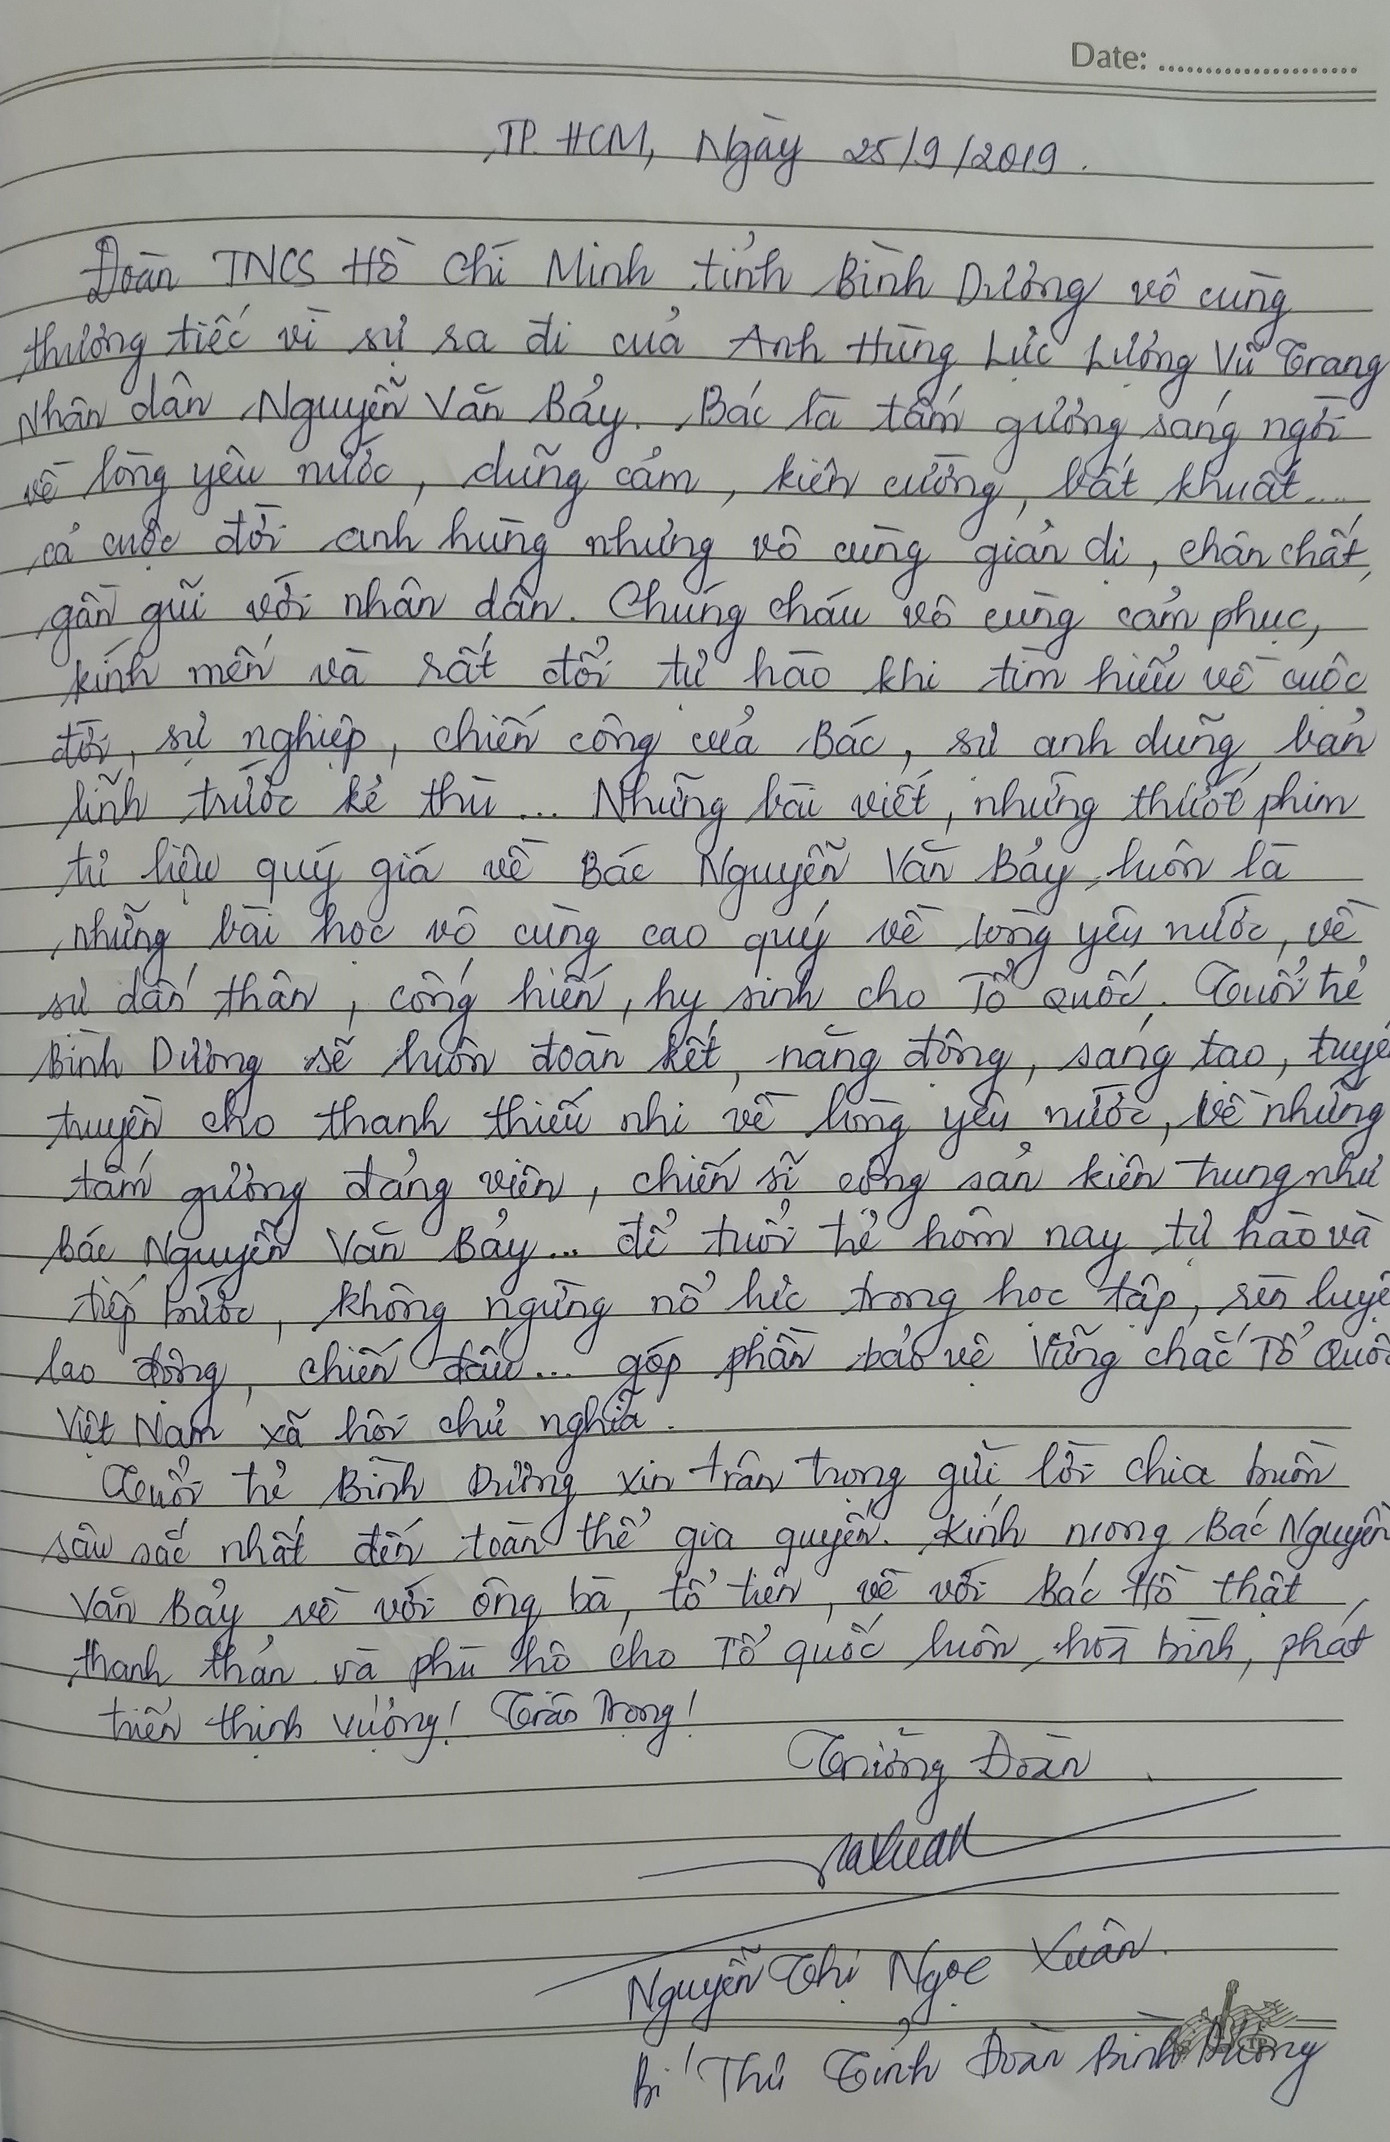 Date: ......................
TP. HCM, Ngày 25/9/2019.
Đoàn TNCS Hồ Chí Minh tỉnh Bình Dương vô cùng
thương tiếc vì sự ra đi của Anh Hùng Lực Lượng Vũ Trang
Nhân dân Nguyễn Văn Bảy. Bác là tấm gương sáng ngời
về lòng yêu nước, dũng cảm, kiên cường, bất khuất...
cả cuộc đời anh hùng nhưng vô cùng giản dị, chân chất,
gần gũi với nhân dân. Chúng cháu vô cùng cảm phục,
kính mến và rất đỗi tự hào khi tìm hiểu về cuộc
đời, sự nghiệp, chiến công của Bác, sự anh dũng, bản
lĩnh trước kẻ thù... Những bài viết, những thước phim
tư liệu quý giá về Bác Nguyễn Văn Bảy luôn là
những bài học vô cùng cao quý về lòng yêu nước, về
sự dấn thân, cống hiến, hy sinh cho Tổ quốc. Tuổi trẻ
Bình Dương sẽ luôn đoàn kết, năng động, sáng tạo, tuyê
truyền cho thanh thiếu nhi về lòng yêu nước, về những
tấm gương đảng viên, chiến sĩ cộng sản kiên trung như
bác Nguyễn Văn Bảy... để tuổi trẻ hôm nay tự hào và
tiếp bước, không ngừng nỗ lực trong học tập, rèn luyệ
lao động, chiến đấu... góp phần bảo vệ vững chắc Tổ Quốc
Việt Nam xã hội chủ nghĩa.
Tuổi trẻ Bình Dương xin trân trọng gửi lời chia buồn
sâu sắc nhất đến toàn thể gia quyến. Kính mong Bác Nguyễn
Văn Bảy về với ông bà, tổ tiên, về với Bác Hồ thật
thanh thản và phù hộ cho Tổ quốc luôn hoà bình, phát
triển thịnh vượng! Trân Trọng!
Trưởng Đoàn
Nguyễn Thị Ngọc Xuân.
Bí Thư Tỉnh Đoàn Bình Dương